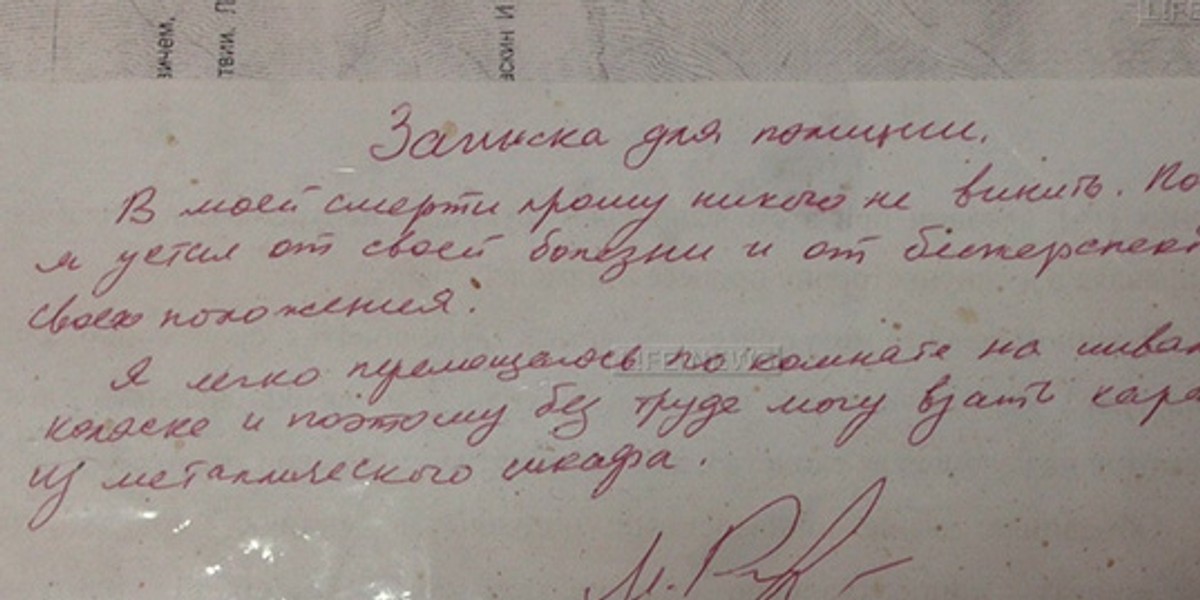 ичем,
твии. Л
ский И
LIFE
Записка для полиции.
В моей смерти прошу никого не винить. По
я устал от своей болезни и от бесперспект
своего положения.
LIFENEWS
Я легко перемещаюсь по комнате на инвал
коляске и поэтому без труда могу взять кара
из металлического шкафа.